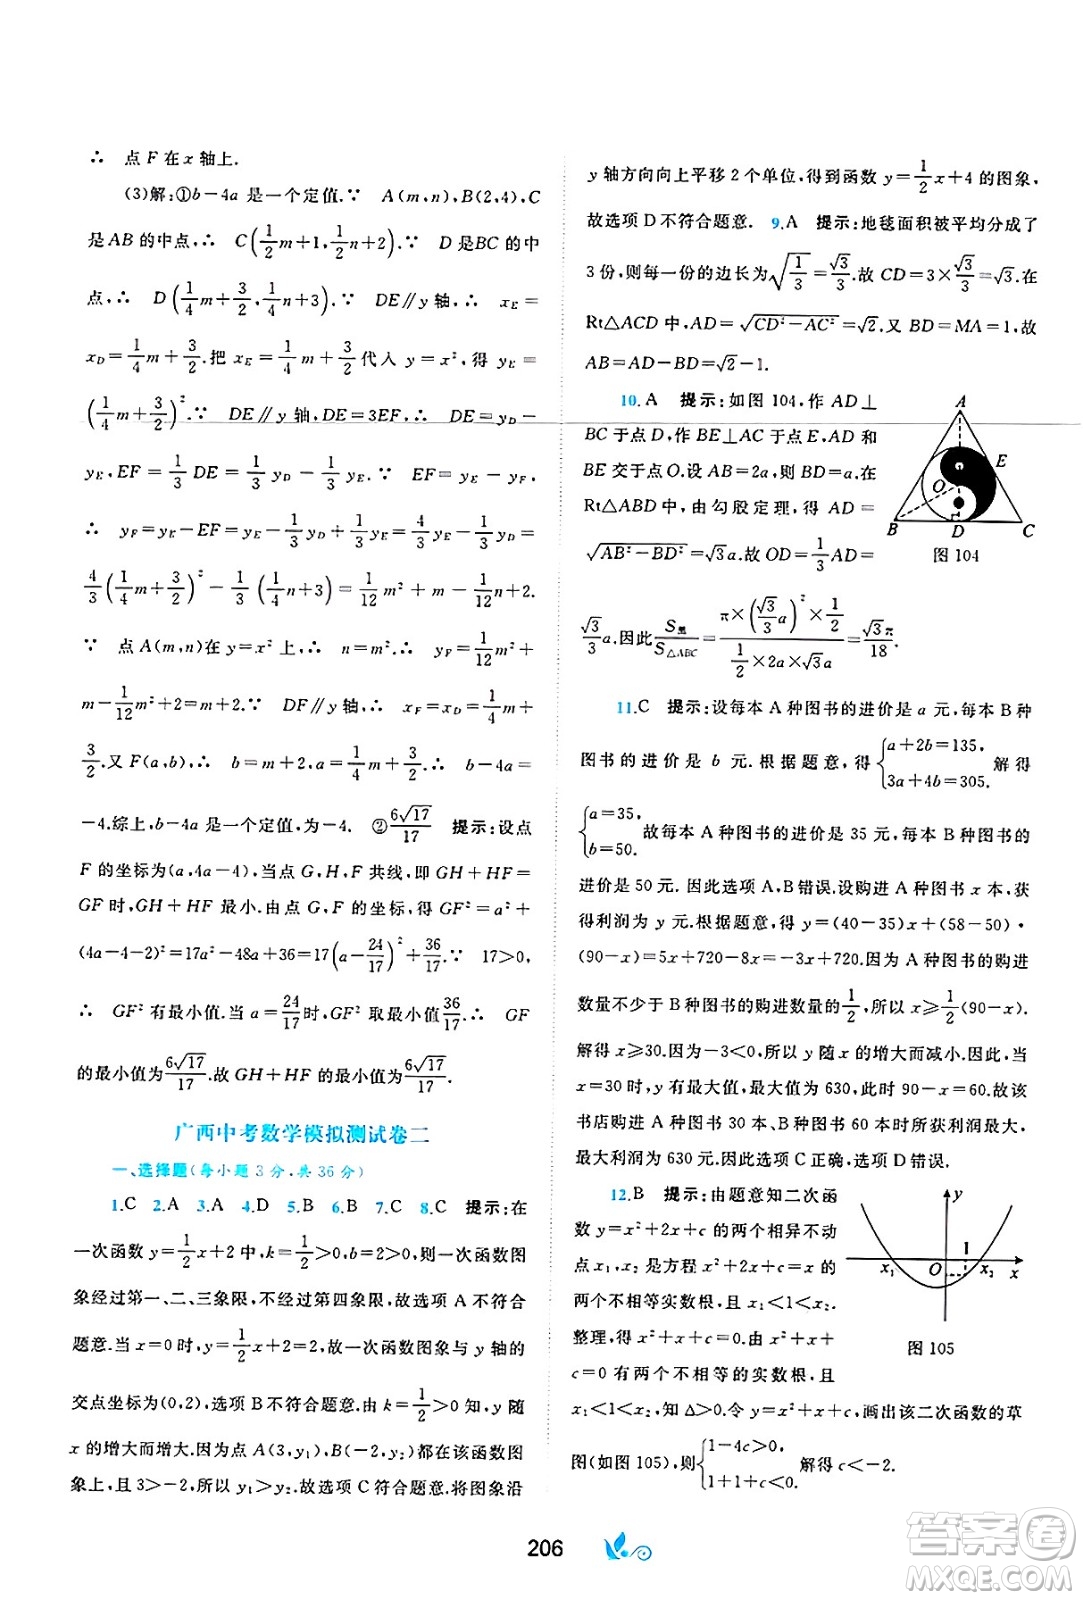 ∴ 点 F 在 x 轴上.
(3)解:①b－4a 是一个定值.∵ A(m,n),B(2,4),C
是AB 的中点,∴ C(1/2m＋1,1/2n＋2).∵ D 是BC 的中
点,∴ D(1/4m＋3/2,1/4n＋3).∵ DE∥y 轴,∴ x_E＝
x_D＝1/4m＋3/2.把 x_E＝1/4m＋3/2代入 y＝x²,得 y_E＝
(1/4m＋3/2)².∵ DE∥y 轴,DE＝3EF,∴ DE＝y_D－
y_E,EF＝1/3DE＝1/3y_D－1/3y_E.∵ EF＝y_E－y_F,
∴ y_F＝y_E－EF＝y_E－1/3y_D＋1/3y_E＝4/3y_E－1/3y_D＝
4/3(1/4m＋3/2)²－1/3(1/4n＋3)＝1/12m²＋m－1/12n＋2.
∵ 点A(m,n)在y＝x²上,∴ n＝m².∴ y_F＝1/12m²＋
m－1/12m²＋2＝m＋2.∵ DF∥y 轴,∴ x_F＝x_D＝1/4m＋
3/2.又 F(a,b),∴ b＝m＋2,a＝1/4m＋3/2.∴ b－4a＝
－4.综上,b－4a 是一个定值,为－4. ②6√17/17 提示:设点
F 的坐标为(a,4a－4),当点 G,H,F 共线,即 GH＋HF＝
GF 时,GH＋HF 最小.由点 G,F 的坐标,得 GF²＝a²＋
(4a－4－2)²＝17a²－48a＋36＝17(a－24/17)²＋36/17.∵ 17>0,
∴ GF² 有最小值.当 a＝24/17时,GF² 取最小值36/17.∴ GF
的最小值为6√17/17.故 GH＋HF 的最小值为6√17/17.
广西中考数学模拟测试卷二
一、选择题(每小题 3 分,共 36 分)
1.C 2.A 3.A 4.D 5.B 6.B 7.C 8.C 提示:在
一次函数 y＝1/2x＋2 中,∵ k＝1/2>0,b＝2>0,则一次函数图
象经过第一、二、三象限,不经过第四象限,故选项 A 不符合
题意.当 x＝0 时,y＝1/2x＋2＝2,故一次函数图象与 y 轴的
交点坐标为(0,2),故选项 B 不符合题意.由 k＝1/2>0,得 y 随
x 的增大而增大.因为点 A(3,y₁),B(－2,y₂)都在该函数图
象上,且 3>－2,所以 y₁>y₂.故选项 C 符合题意.将图象沿
y 轴方向向上平移 2 个单位,得到函数 y＝1/2x＋4 的图象,
故选项 D 不符合题意. 9.A 提示:地毯面积被平均分成了
3 份,则每一份的边长为√(1/3)＝√3/3.故 CD＝3×√3/3＝√3.在
Rt△ACD 中,AD＝√(CD²－AC²)＝√2.又 BD＝MA＝1,故
AB＝AD－BD＝√2－1.
10.A 提示:如图 104,作 AD⊥
BC 于点 D,作 BE⊥AC 于点 E,AD 和
BE 交于点 O.设 AB＝2a,则 BD＝a.在
Rt△ABD 中,由勾股定理,得 AD＝
√(AB²－BD²)＝√3a.故 OD＝1/3AD＝
√3/3a.因此S黑/S△ABC＝(π×(√3/3a)²×1/2)/(1/2×2a×√3a)＝√3π/18.
A
E
O
B D C
图 104
11.C 提示:设每本 A 种图书的进价是 a 元,每本 B 种
图书的进价是 b 元.根据题意,得{a＋2b＝135, 3a＋4b＝305. 解得
{a＝35, b＝50. 故每本 A 种图书的进价是 35 元,每本 B 种图书的
进价是 50 元. 因此选项 A,B 错误.设购进 A 种图书 x 本,获
得利润为 y 元.根据题意,得 y＝(40－35)x＋(58－50)·
(90－x)＝5x＋720－8x＝－3x＋720.因为 A 种图书的购进
数量不少于 B 种图书的购进数量的1/2,所以 x≥1/2(90－x).
解得 x≥30.因为－3<0,所以 y 随 x 的增大而减小.因此当
x＝30时,y 有最大值,最大值为 630,此时 90－x＝60.故该
书店购进 A 种图书 30 本、B 种图书 60 本时所获利润最大,
最大利润为 630 元.因此选项 C 正确,选项 D 错误.
12.B 提示:由题意知二次函
数 y＝x²＋2x＋c 的两个相异不动
点 x₁,x₂ 是方程 x²＋2x＋c＝x 的
两个不相等实数根,且 x₁<1<x₂.
整理,得 x²＋x＋c＝0.故 x²＋x＋
c＝0 有两个不相等的实数根,且
x₁<1<x₂,知 Δ>0.令 y＝x²＋x＋c,画出该二次函数的草
图(如图 105),则{1－4c>0, 1＋1＋c<0. 解得 c<－2.
y
1
x₁ O x₂ x
图 105
206
答案圈
MXQE.COM